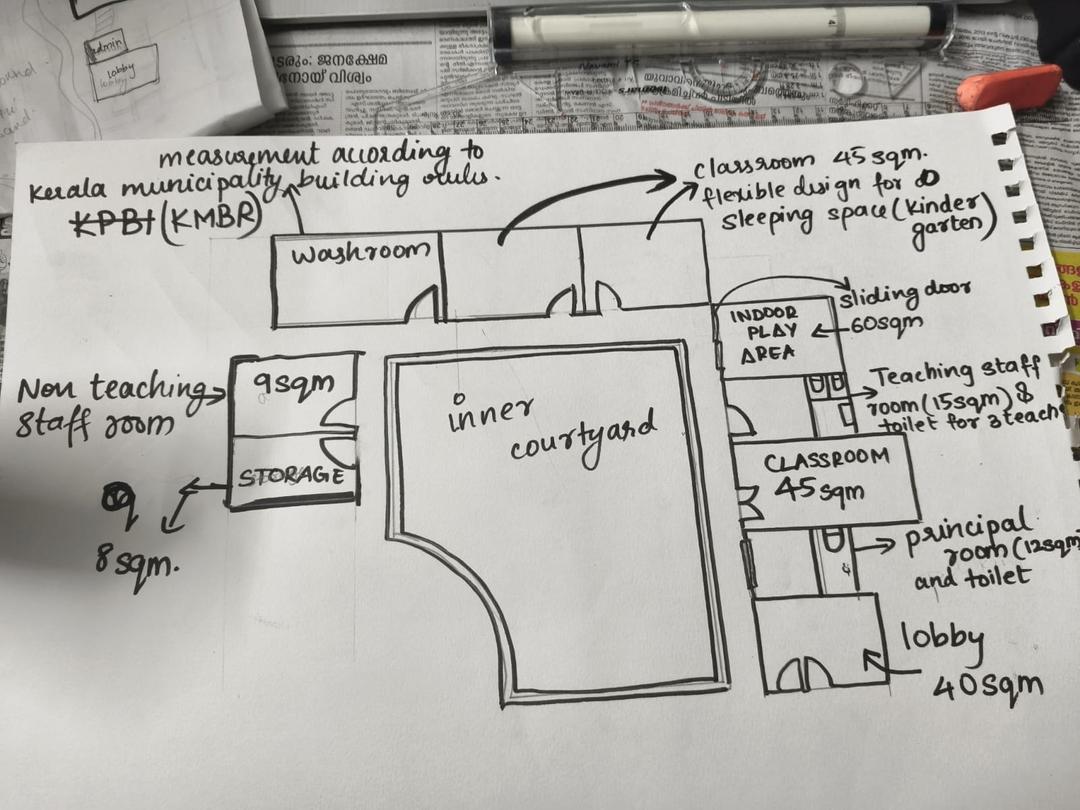 admin
lobby
തരും: ജനക്ഷേമ
നോയ് വിശ്വം
measurement according to
Kerala municipality building rules.
KPBI (KMBR)
classroom 45 sqm.
flexible design for
sleeping space (kinder
garten)
washroom
sliding door
INDOOR
PLAY
AREA
60sqm
Non teaching
staff room
9sqm
STORAGE
8 sqm.
inner
courtyard
Teaching staff
room (15sqm) &
toilet for 3 teach
CLASSROOM
45 sqm
principal
room (12sqm)
and toilet
lobby
40sqm